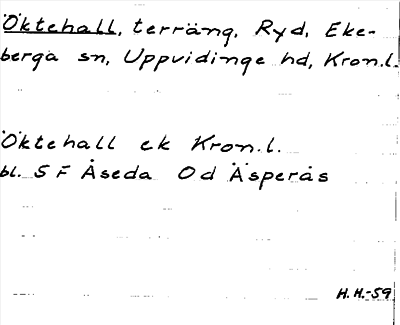 Öktehall, terräng, Ryd, Eke-
berga sn, Uppvidinge hd, Kron.l.
Öktehall ek Kron.l.
bl. 5 F Åseda Od Äsperås
H.H.-59